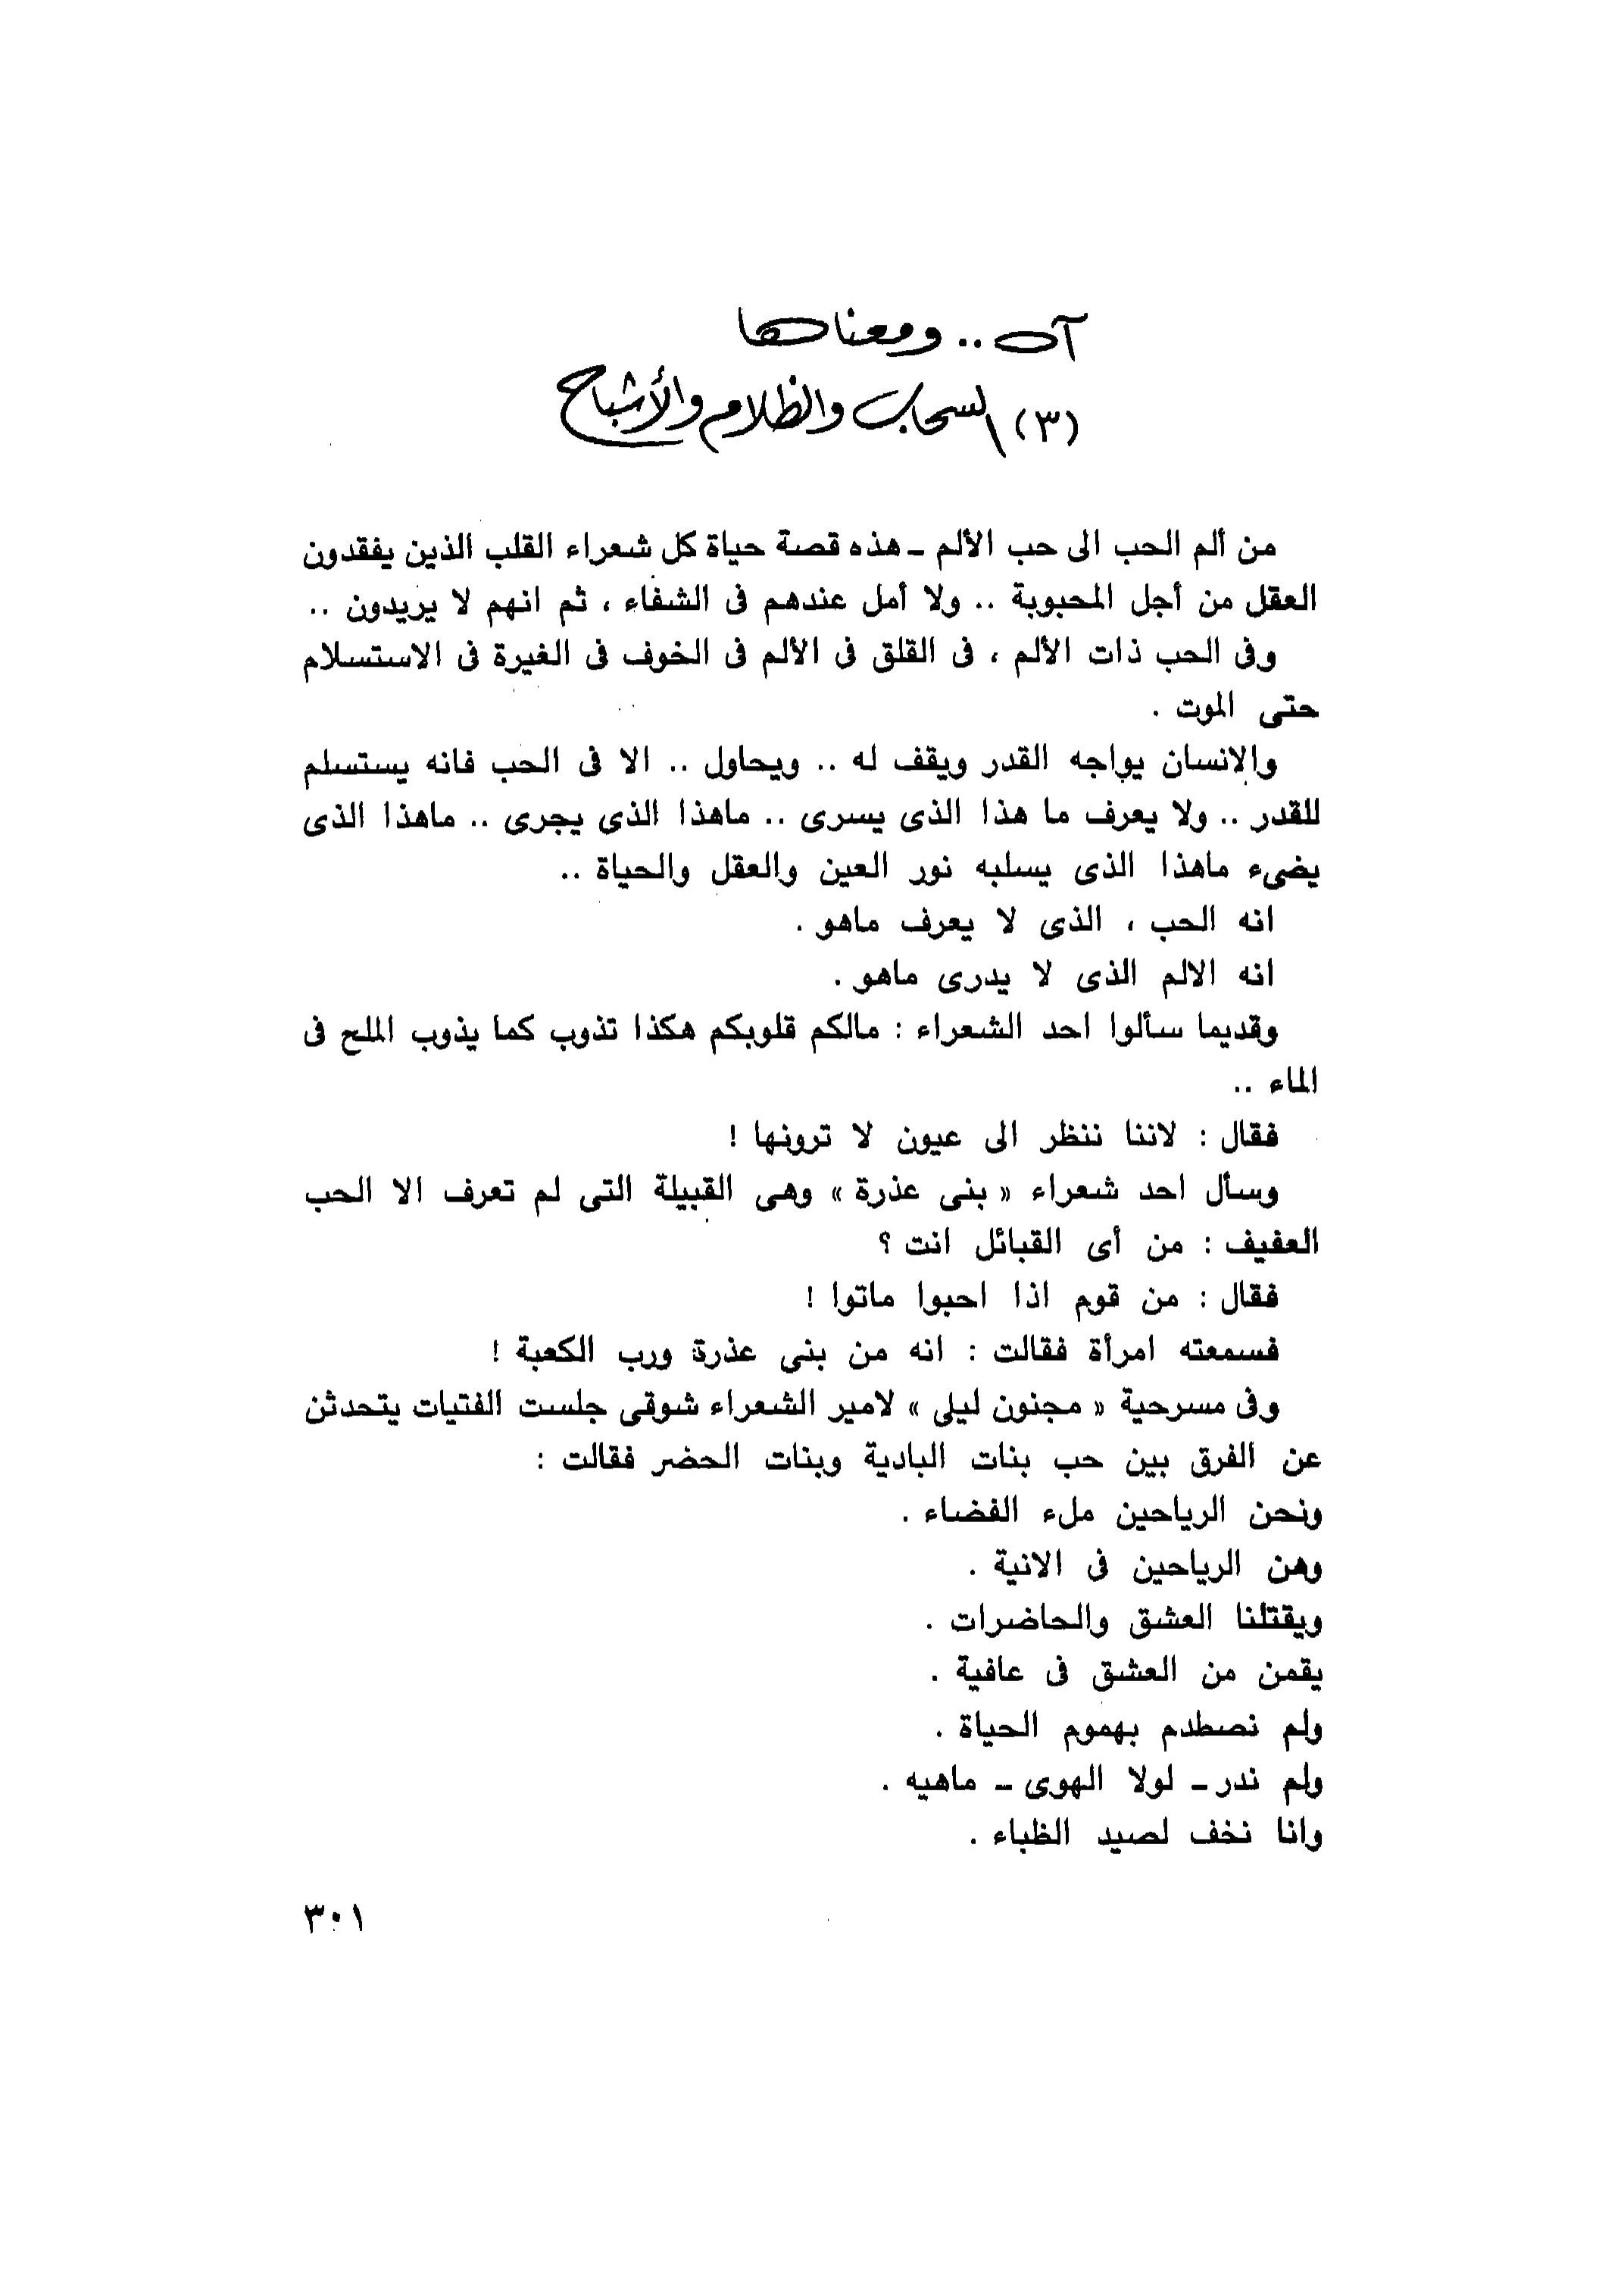 آه .. ومعناها
(٣) السحاب والظلام والأشباح
من ألم الحب الى حب الألم ـ هذه قصة حياة كل شعراء القلب الذين يفقدون
العقل من أجل المحبوبة .. ولا أمل عندهم فى الشفاء ، ثم انهم لا يريدون ..
وفى الحب ذات الألم ، فى القلق فى الألم فى الخوف فى الغيرة فى الاستسلام
حتى الموت .
والانسان يواجه القدر ويقف له .. ويحاول .. الا فى الحب فانه يستسلم
للقدر .. ولا يعرف ما هذا الذى يسرى .. ماهذا الذى يجرى .. ماهذا الذى
يضىء ماهذا الذى يسلبه نور العين والعقل والحياة ..
انه الحب ، الذى لا يعرف ماهو .
انه الالم الذى لا يدرى ماهو .
وقديما سألوا احد الشعراء : مالكم قلوبكم هكذا تذوب كما يذوب الملح فى
الماء ..
فقال : لاننا ننظر الى عيون لا ترونها !
وسأل احد شعراء « بنى عذرة » وهى القبيلة التى لم تعرف الا الحب
العفيف : من أى القبائل انت ؟
فقال : من قوم اذا احبوا ماتوا !
فسمعته امرأة فقالت : انه من بنى عذرة ورب الكعبة !
وفى مسرحية « مجنون ليلى » لامير الشعراء شوقى جلست الفتيات يتحدثن
عن الفرق بين حب بنات البادية وبنات الحضر فقالت :
ونحن الرياحين ملء الفضاء .
وهن الرياحين فى الانية .
ويقتلنا العشق والحاضرات .
يقمن من العشق فى عافية .
ولم نصطدم بهموم الحياة .
ولم ندر ـ لولا الهوى ـ ماهيه .
وانا نخف لصيد الظباء .
٣٠١